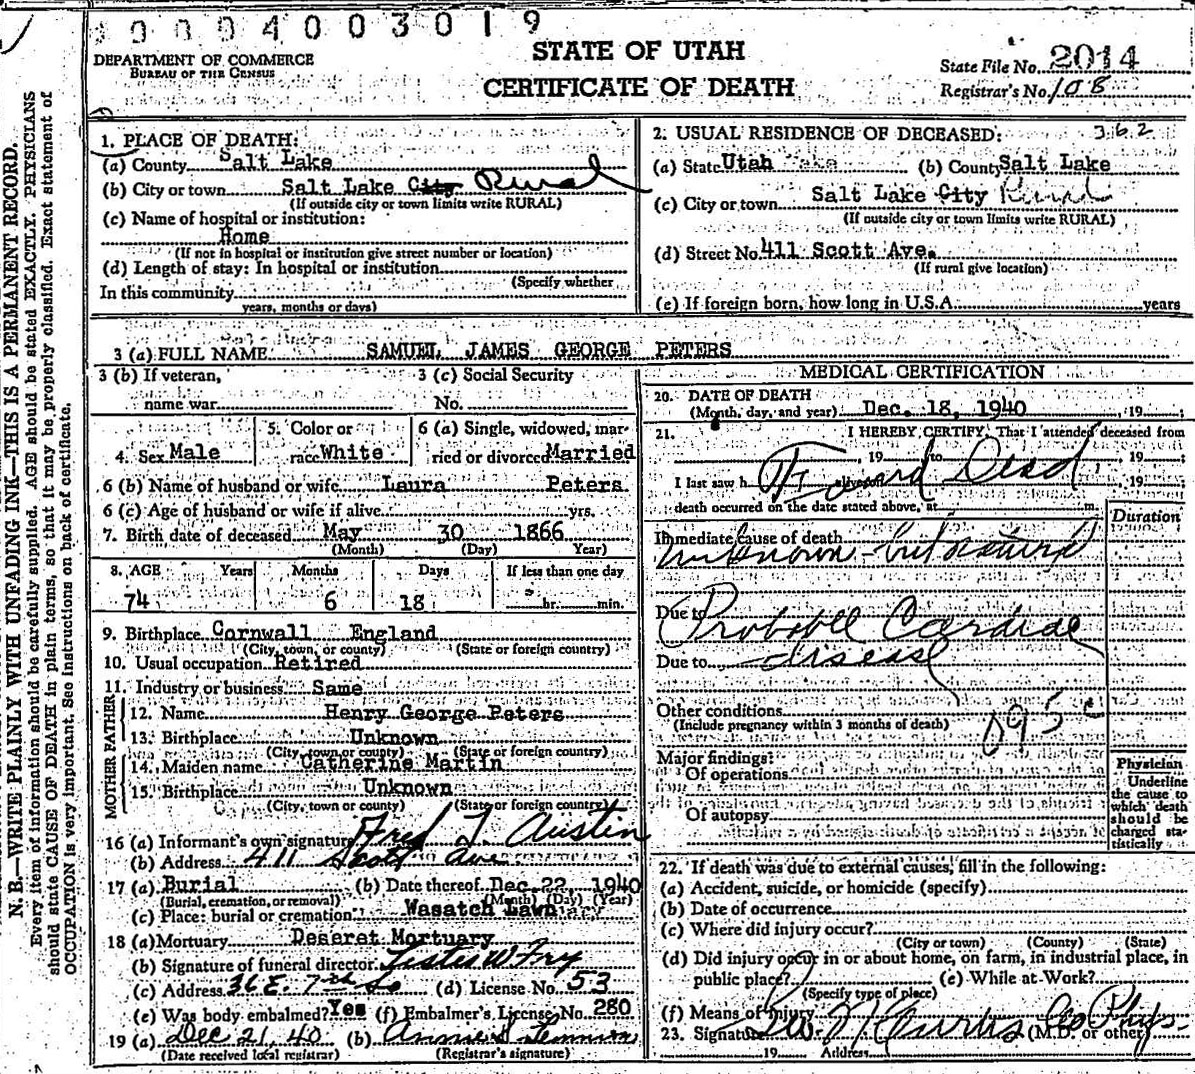 0004003019
STATE OF UTAH
CERTIFICATE OF DEATH
DEPARTMENT OF COMMERCE
BUREAU OF THE CENSUS
State File No. 2014
Registrar's No. 108
N. B.—WRITE PLAINLY WITH UNFADING INK—THIS IS A PERMANENT RECORD.
Every item of information should be carefully supplied. AGE should be stated EXACTLY. PHYSICIANS
should state CAUSE OF DEATH in plain terms, so that it may be properly classified. Exact statement of
OCCUPATION is very important. See instructions on back of certificate.
1. PLACE OF DEATH:
(a) County Salt Lake
(b) City or town Salt Lake City Rural
(If outside city or town limits write RURAL)
(c) Name of hospital or institution:
Home
(If not in hospital or institution give street number or location)
(d) Length of stay: In hospital or institution
(Specify whether
In this community
years, months or days)
2. USUAL RESIDENCE OF DECEASED: 362
(a) State Utah (b) County Salt Lake
(c) City or town Salt Lake City Rural
(If outside city or town limits write RURAL)
(d) Street No. 411 Scott Ave.
(If rural give location)
(e) If foreign born, how long in U.S.A. years
3 (a) FULL NAME SAMUEL JAMES GEORGE PETERS
3 (b) If veteran,
name war
3 (c) Social Security
No.
4. Sex Male
5. Color or
race White
6 (a) Single, widowed, mar-
ried or divorced Married
6 (b) Name of husband or wife Laura Peters
6 (c) Age of husband or wife if alive yrs.
7. Birth date of deceased May 30 1866
(Month) (Day) Year)
8. AGE Years Months Days If less than one day
74 6 18 hr. min.
9. Birthplace Cornwall England
(City, town, or county) (State or foreign country)
10. Usual occupation Retired
11. Industry or business Same
FATHER
12. Name Henry George Peters
13. Birthplace Unknown
(City, town or county) (State or foreign country)
MOTHER
14. Maiden name Catherine Martin
15. Birthplace Unknown
(City, town or county) (State or foreign country)
16 (a) Informant's own signature Fred T. Austin
(b) Address 411 Scott Ave
17 (a) Burial (b) Date thereof Dec. 22, 1940
(Burial, cremation, or removal) (Month) (Day) (Year)
(c) Place: burial or cremation Wasatch Lawn
18 (a) Mortuary Deseret Mortuary
(b) Signature of funeral director Lester W Fry
(c) Address 36 E. 7th So (d) License No. 53
(e) Was body embalmed? Yes (f) Embalmer's License No. 280
19 (a) Dec 21, 40 (b) Annie
(Date received local registrar) (Registrar's signature)
MEDICAL CERTIFICATION
20. DATE OF DEATH
(Month, day, and year) Dec. 18, 1940, 19 ;
21. I HEREBY CERTIFY, That I attended deceased from
, 19 to , 19 ;
Found Dead
I last saw h alive on , 19 ;
death occurred on the date stated above, at m.
Duration
Immediate cause of death
Unknown - but natural
Due to Probable Cardiac
Due to disease
Other conditions 095c
(Include pregnancy within 3 months of death)
Major findings:
Of operations
Of autopsy
Physician
Underline
the cause to
which death
should be
charged sta-
tistically
22. If death was due to external causes, fill in the following:
(a) Accident, suicide, or homicide (specify)
(b) Date of occurrence
(c) Where did injury occur?
(City or town) (County) (State)
(d) Did injury occur in or about home, on farm, in industrial place, in
public place? (e) While at Work?
(Specify type of place)
(f) Means of Injury
23. Signature Curtis Co Phys. (M.D. or other)
19 Address